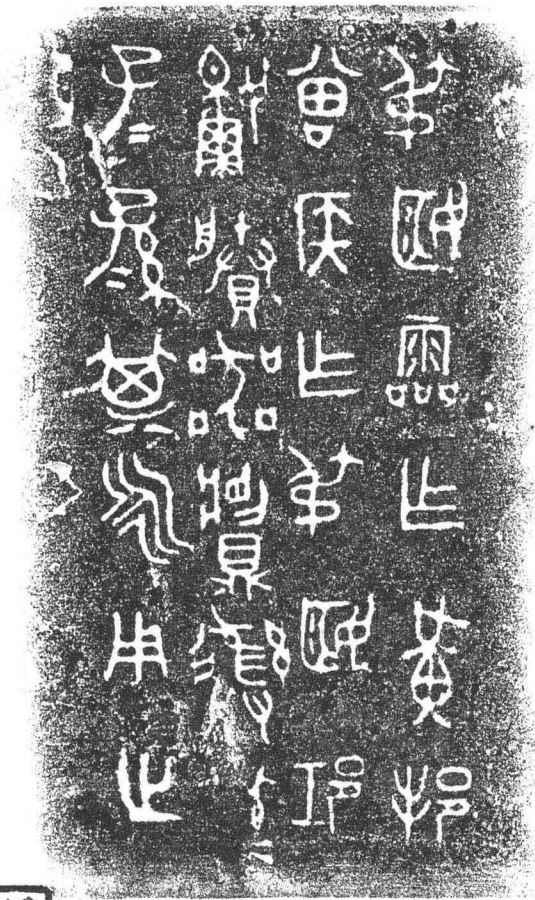 叔姬霝乍黃邦
曾侯乍叔姬邛
嬭賸器䵼彝其
子=孫=其永用之